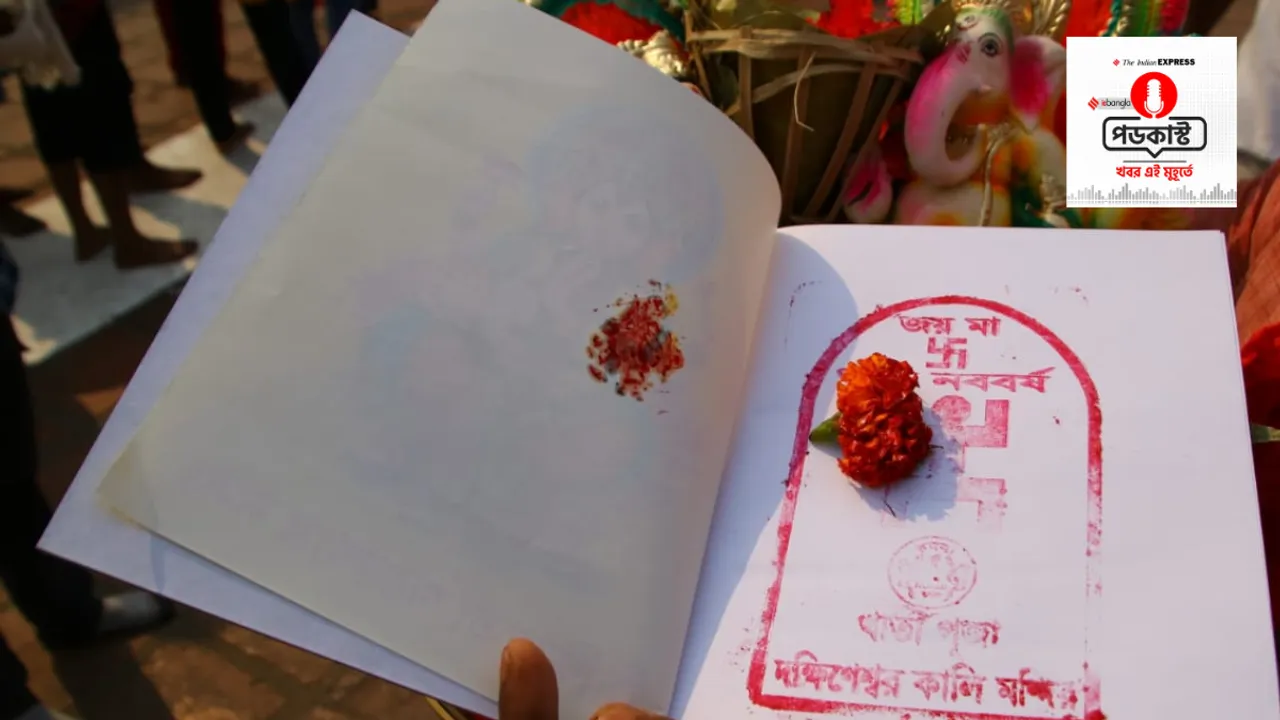 The Indian EXPRESS
iebangla
পডকাস্ট
খবর এই মুহূর্তে
জয় মা
নববর্ষ
খাতা পূজা
দক্ষিণেশ্বর কালি মন্দির